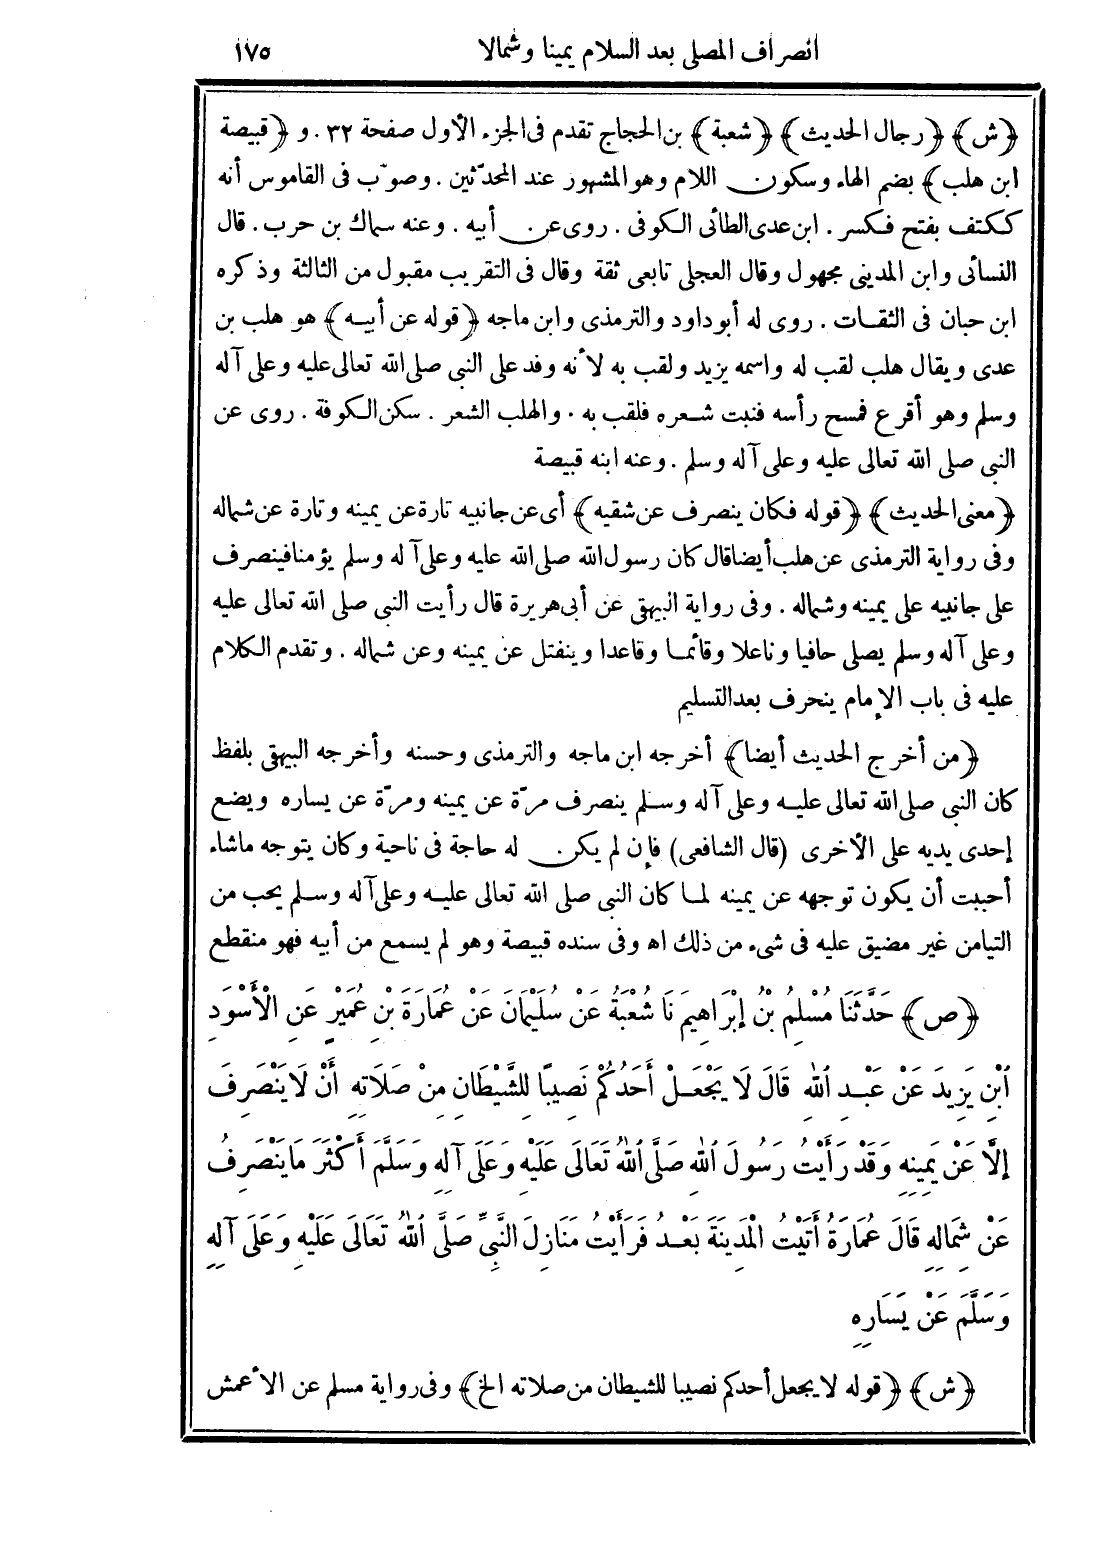 انصراف المصلى بعد السلام يمينا وشمالا ١٧٥
﴿ش﴾ ﴿رجال الحديث﴾ ﴿شعبة﴾ بن الحجاج تقدم فى الجزء الأول صفحة ٣٢ . و ﴿قبيصة
ابن هلب﴾ بضم الهاء وسكون اللام وهو المشهور عند المحدّثين . وصوّب فى القاموس أنه
ككتف بفتح فكسر . ابن عدى الطائى الكوفى . روى عن أبيه . وعنه سماك بن حرب . قال
النسائى وابن المدينى مجهول وقال العجلى تابعى ثقة وقال فى التقريب مقبول من الثالثة وذكره
ابن حبان فى الثقات . روى له أبو داود والترمذى وابن ماجه ﴿قوله عن أبيه﴾ هو هلب بن
عدى ويقال هلب لقب له واسمه يزيد ولقب به لأنه وفد على النبى صلى الله تعالى عليه وعلى آله
وسلم وهو أقرع فمسح رأسه فنبت شعره فلقب به . والهلب الشعر . سكن الكوفة . روى عن
النبى صلى الله تعالى عليه وعلى آله وسلم . وعنه ابنه قبيصة
﴿معنى الحديث﴾ ﴿قوله فكان ينصرف عن شقيه﴾ أى عن جانبيه تارة عن يمينه وتارة عن شماله
وفى رواية الترمذى عن هلب أيضا قال كان رسول الله صلى الله عليه وعلى آله وسلم يؤمنا فينصرف
على جانبيه على يمينه وشماله . وفى رواية البيهقى عن أبى هريرة قال رأيت النبى صلى الله تعالى عليه
وعلى آله وسلم يصلى حافيا وناعلا وقائما وقاعدا وينفتل عن يمينه وعن شماله . وتقدم الكلام
عليه فى باب الإمام ينحرف بعد التسليم
﴿من أخرج الحديث أيضا﴾ أخرجه ابن ماجه والترمذى وحسنه وأخرجه البيهقى بلفظ
كان النبى صلى الله تعالى عليه وعلى آله وسلم ينصرف مرّة عن يمينه ومرّة عن يساره ويضع
إحدى يديه على الأخرى (قال الشافعى) فإن لم يكن له حاجة فى ناحية وكان يتوجه ماشاء
أحببت أن يكون توجهه عن يمينه لما كان النبى صلى الله تعالى عليه وعلى آله وسلم يحب من
التيامن غير مضيق عليه فى شىء من ذلك اه وفى سنده قبيصة وهو لم يسمع من أبيه فهو منقطع
﴿ص﴾ حَدَّثَنَا مُسْلِمُ بْنُ إِبْرَاهِيمَ نَا شُعْبَةُ عَنْ سُلَيْمَانَ عَنْ عُمَارَةَ بْنِ عُمَيْرٍ عَنِ الْأَسْوَدِ
ابْنِ يَزِيدَ عَنْ عَبْدِ اللهِ قَالَ لَا يَجْعَلْ أَحَدُكُمْ نَصِيبًا لِلشَّيْطَانِ مِنْ صَلَاتِهِ أَنْ لَا يَنْصَرِفَ
إِلَّا عَنْ يَمِينِهِ وَقَدْ رَأَيْتُ رَسُولَ اللهِ صَلَّى اللهُ تَعَالَى عَلَيْهِ وَعَلَى آلِهِ وَسَلَّمَ أَكْثَرَ مَا يَنْصَرِفُ
عَنْ شِمَالِهِ قَالَ عُمَارَةُ أَتَيْتُ الْمَدِينَةَ بَعْدُ فَرَأَيْتُ مَنَازِلَ النَّبِيِّ صَلَّى اللهُ تَعَالَى عَلَيْهِ وَعَلَى آلِهِ
وَسَلَّمَ عَنْ يَسَارِهِ
﴿ش﴾ ﴿قوله لا يجعل أحدكم نصيبا للشيطان من صلاته الخ﴾ وفى رواية مسلم عن الأعمش